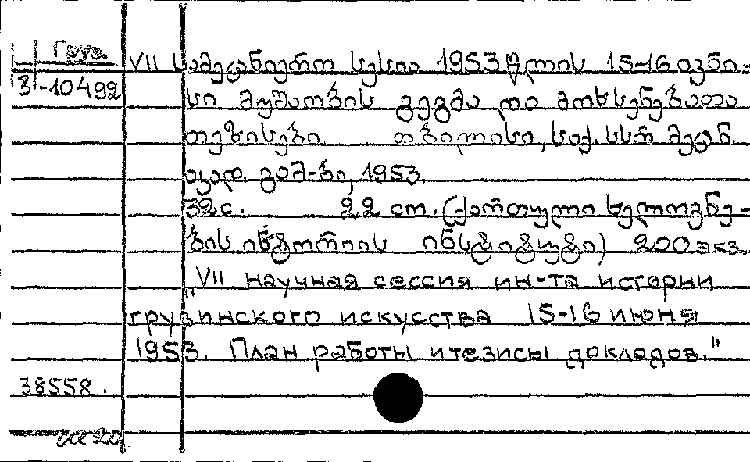 Груз.
3-10492
VII სამეცნიერო სესია 1953 წლის 15-16 ივნი-
სი მუშაობის გეგმა და მოხსენებათა
თეზისები. თბილისი, საქ. სსრ მეცნ.
აკად. გამ-ბა, 1953.
32 с. 22 см. (ქართული ხელოვნე-
ბის ისტორიის ინსტიტუტი) 200 экз.
"VII научная сессия ин-та истории
грузинского искусства 15-16 июня
1953. План работы и тезисы докладов."
38558.